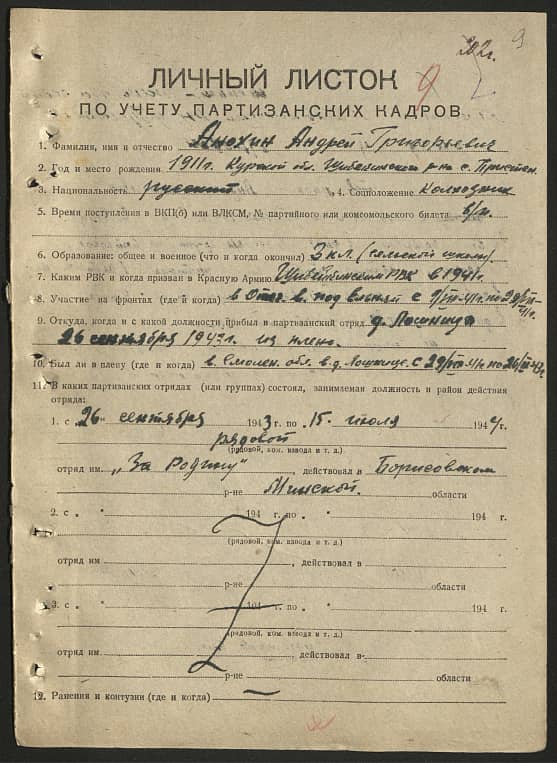 202г. 9
9
ЛИЧНЫЙ ЛИСТОК
ПО УЧЕТУ ПАРТИЗАНСКИХ КАДРОВ
1. Фамилия, имя и отчество Анохин Андрей Григорьевич
2. Год и место рождения 1911г. Курской обл. р-на с.
3. Национальность русский 4. Соцположение Колхозник
5. Время поступления в ВКП(б) или ВЛКСМ, № партийного или комсомольского билета б/п.
6. Образование: общее и военное (что и когда окончил) 3 кл. (сельской школы).
7. Каким РВК и когда призван в Красную Армию РВК в 1941г.
8. Участие на фронтах (где и когда) в Отеч. в. под с по
9. Откуда, когда и с какой должности прибыл в партизанский отряд д. Лошница
26 сентября 1943г. из плена.
10. Был ли в плену (где и когда) в. Смолен. обл. в д. Лошнице. с 29/VIII-41г по 26/IX-43г.
11. В каких партизанских отрядах (или группах) состоял, занимаемая должность и район действия
отряда:
1. с „26 сентября 1943 г. по „15 июля 1944 г.
рядовой
(рядовой, ком. взвода и т. д.)
отряд им „За Родину", действовал в Борисовском
р-не Минской. области
2. с „ " 194 г. по „ " 194 г.
(рядовой, ком. взвода и т. д.)
отряд им , действовал в
р-не области
3. с „ " 194 г. по „ " 194 г.
(рядовой, ком. взвода и т. д.)
отряд им , действовал в
р-не области
12. Ранения и контузии (где и когда) —